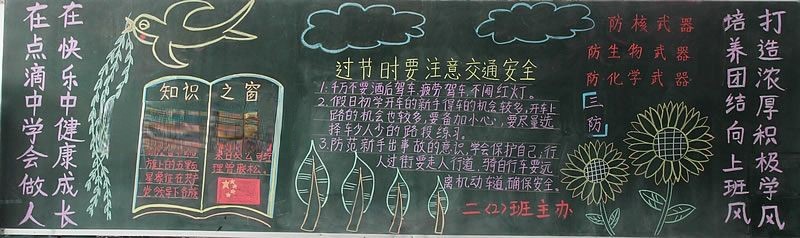 在快乐中健康成长
在点滴中学会做人
知识之窗
旗上的五颗
过节时要注意交通安全
1.千万不要酒后驾车,疲劳驾车,不闯红灯。
2.假日初学开车的新手得车的机会较多,开车上
路的机会也较多,要备加小心,要尽量选
择车少人少的路段练习。
3.防范新手出事故的意识,学会保护自己,行
人过街要走人行道,骑自行车要远
离机动车道,确保安全。
二〈2〉班主办
防核武器
防生物武器
防化学武器
三防
打造浓厚积极学风
培养团结向上班风